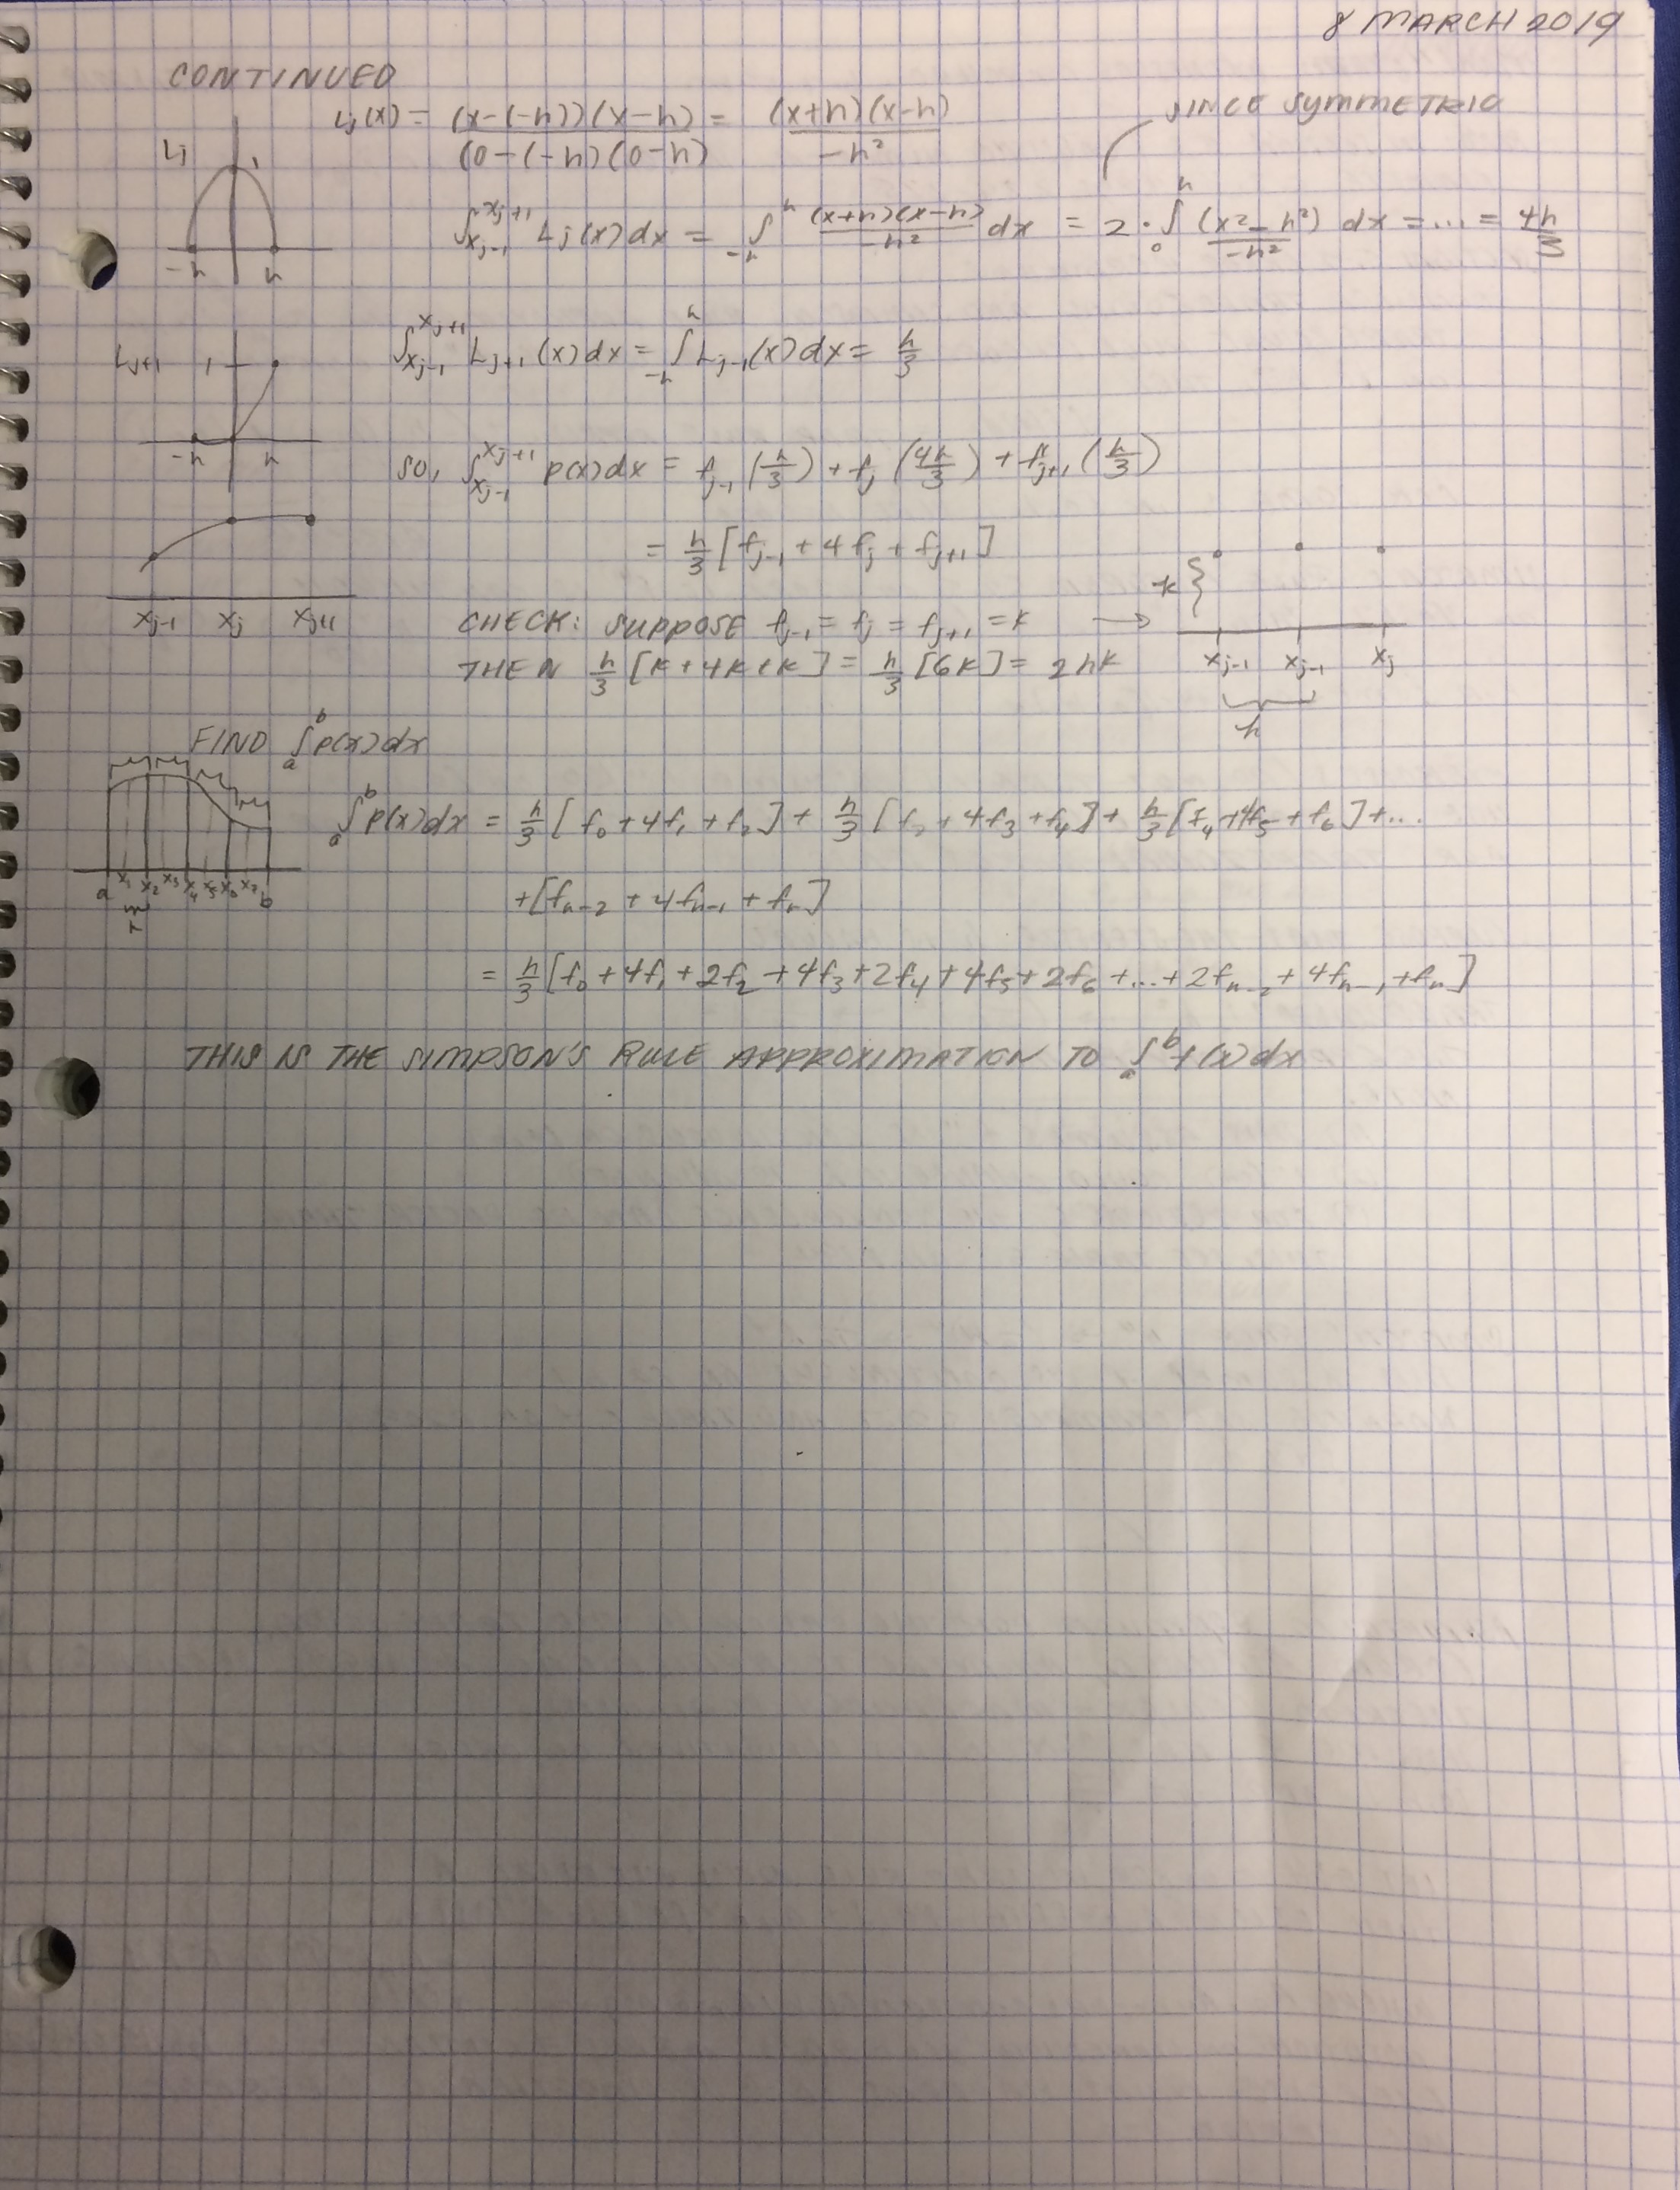 8 MARCH 2019
CONTINUED
Lj(x) = (x-(-h))(x-h) / (0-(-h)(0-h) = (x+h)(x-h) / -h²
SINCE SYMMETRIC
Lj 1
-h h
∫_{xj-1}^{xj+1} Lj(x)dx = ∫_{-h}^{h} (x+h)(x-h)/-h² dx = 2·∫_0^h (x²-h²)/-h² dx = ... = 4h/3
Lj+1 1
-h h
∫_{xj-1}^{xj+1} Lj+1(x)dx = ∫_{-h}^{h} Lj-1(x)dx = h/3
SO, ∫_{xj-1}^{xj+1} p(x)dx = fj-1(h/3) + fj(4h/3) + fj+1(h/3)
= h/3[fj-1 + 4fj + fj+1]
xj-1 xj xj+1
CHECK: SUPPOSE fj-1 = fj = fj+1 = k →
THEN h/3[k+4k+k] = h/3[6k] = 2hk
k{
xj-1 xj-1 xj
h
FIND ∫_a^b p(x)dx
∫_a^b p(x)dx = h/3[f0+4f1+f2] + h/3[f2+4f3+f4] + h/3[f4+4f5+f6]+...
a x1 x2 x3 x4 x5 x6 x7 b
h
+[fn-2 + 4fn-1 + fn]
= h/3[f0+4f1+2f2+4f3+2f4+4f5+2f6+...+2fn-2+4fn-1+fn]
THIS IS THE SIMPSON'S RULE APPROXIMATION TO ∫_a^b f(x)dx